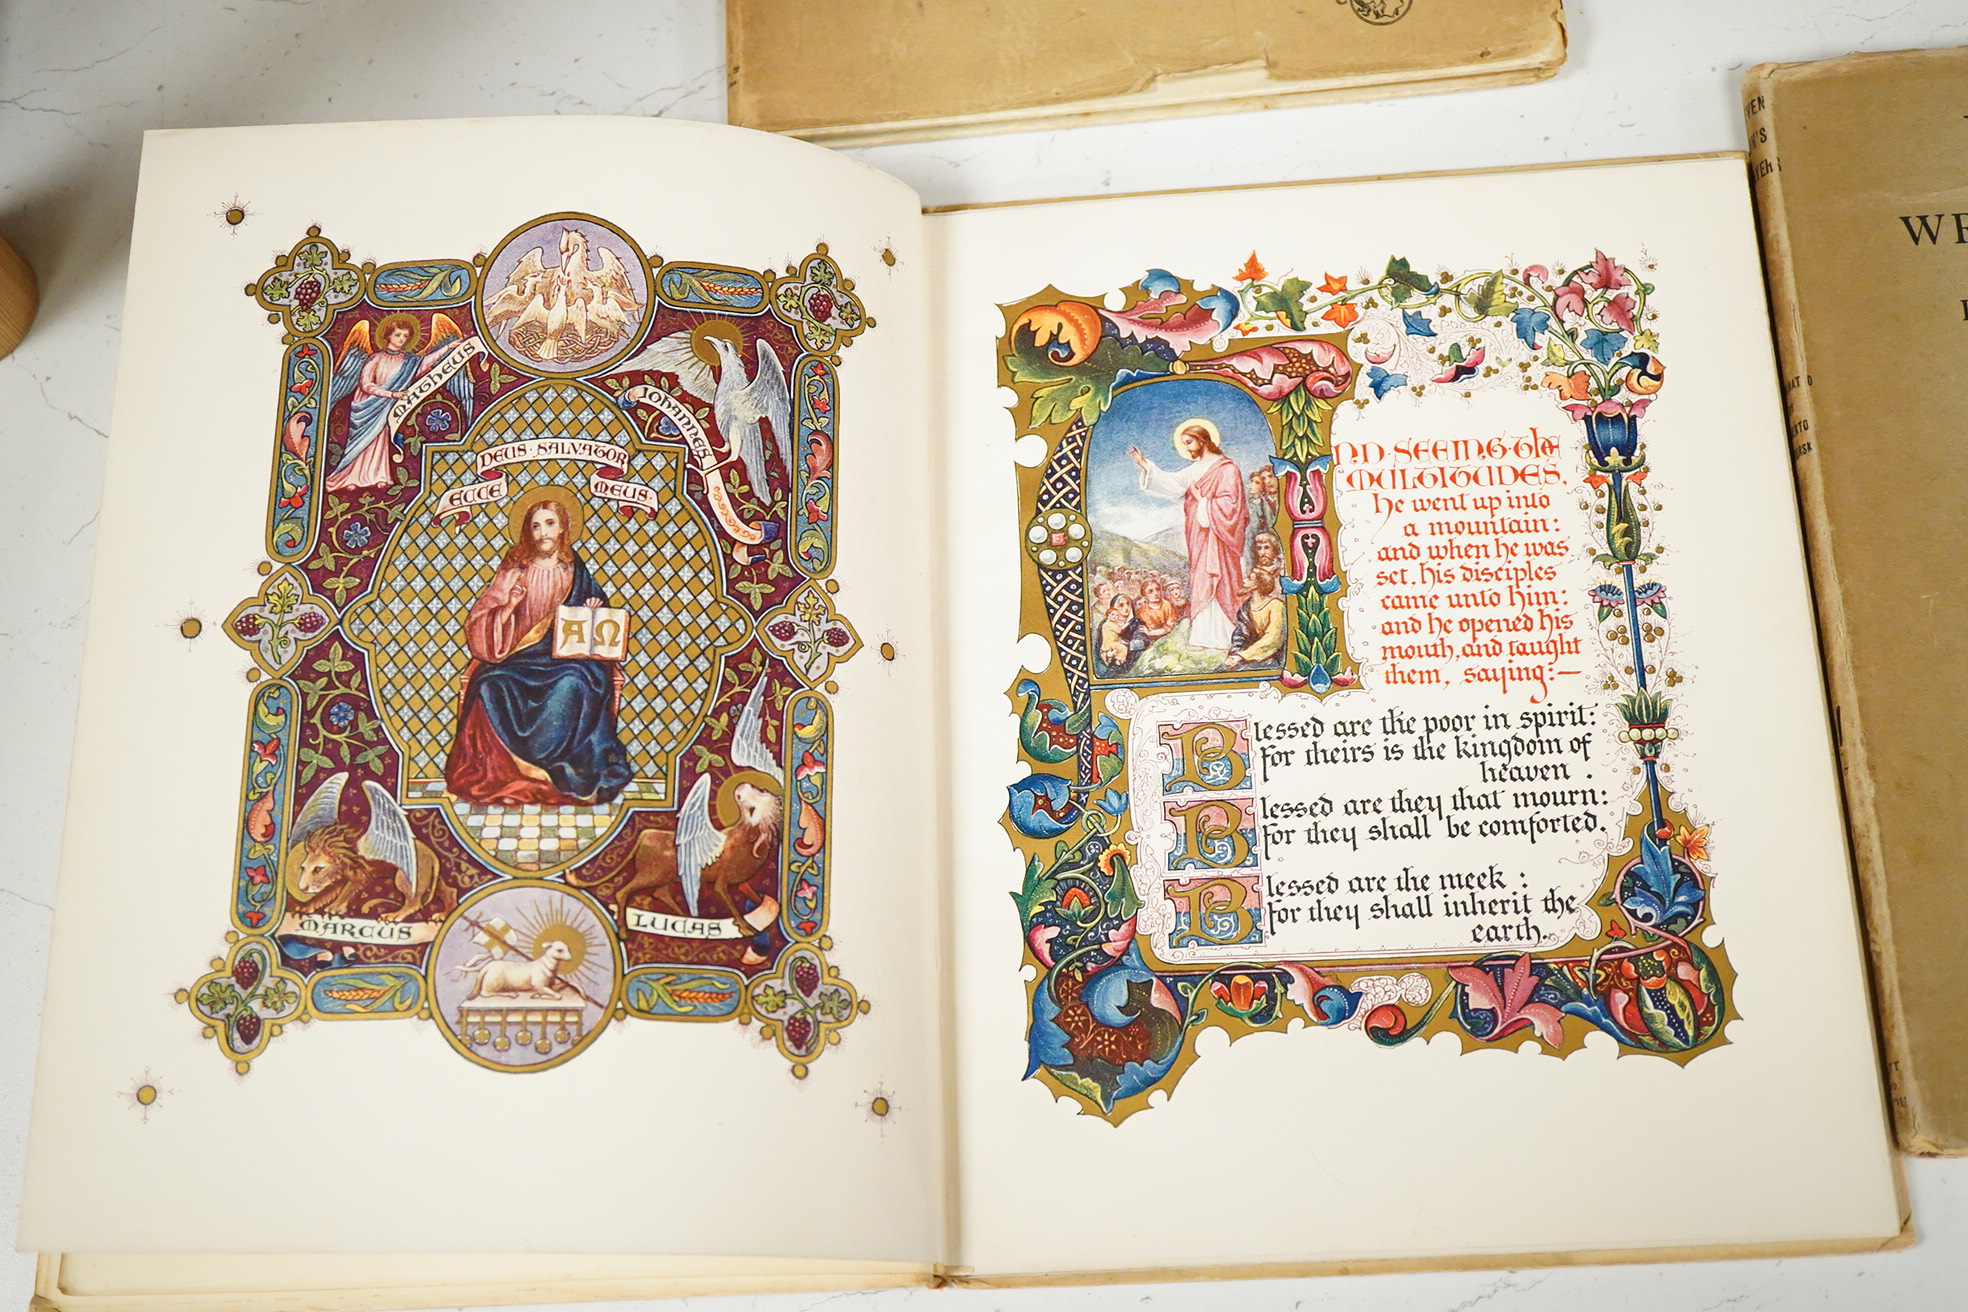 MATHEUS
IOHANNES
DEUS·SALVATOR
ECCE MEUS·
A Ω
MARCUS
LUCAS
ND·SEEING·the
MULTITUDES,
he went up into
a mountain:
and when he was
set, his disciples
came unto him:
and he opened his
mouth, and taught
them, saying:—
Blessed are the poor in spirit:
for theirs is the kingdom of
heaven .
Blessed are they that mourn:
for they shall be comforted.
Blessed are the meek :
for they shall inherit the
earth.